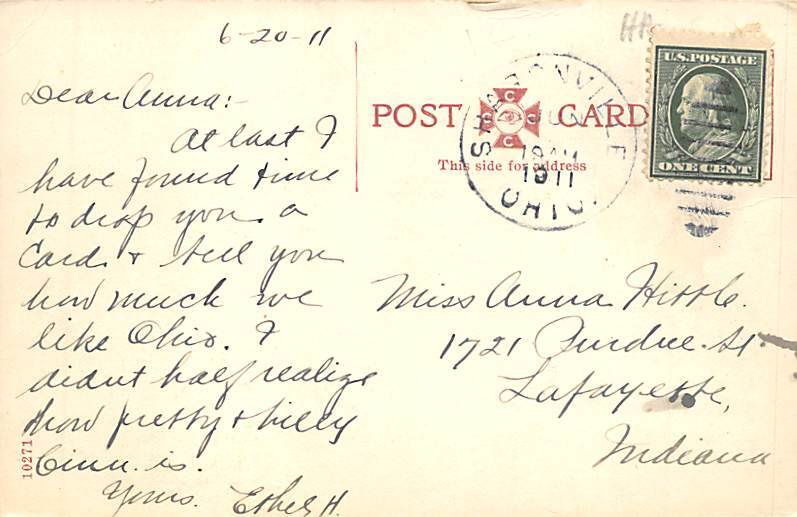 6-20-11
Dear Anna:-
At last I
have found time
to drop you a
Card & tell you
how much we
like Ohio. I
didnt half realize
how pretty & hilly
Cinn. is.
Yours. Ethel H.
10271
POST CARD
C C C C
This side for address
SHARONVILLE
JUN
1911
OHIO.
U.S. POSTAGE
ONE CENT
Miss Anna
1721 Purdue St
Lafayette,
Indiana